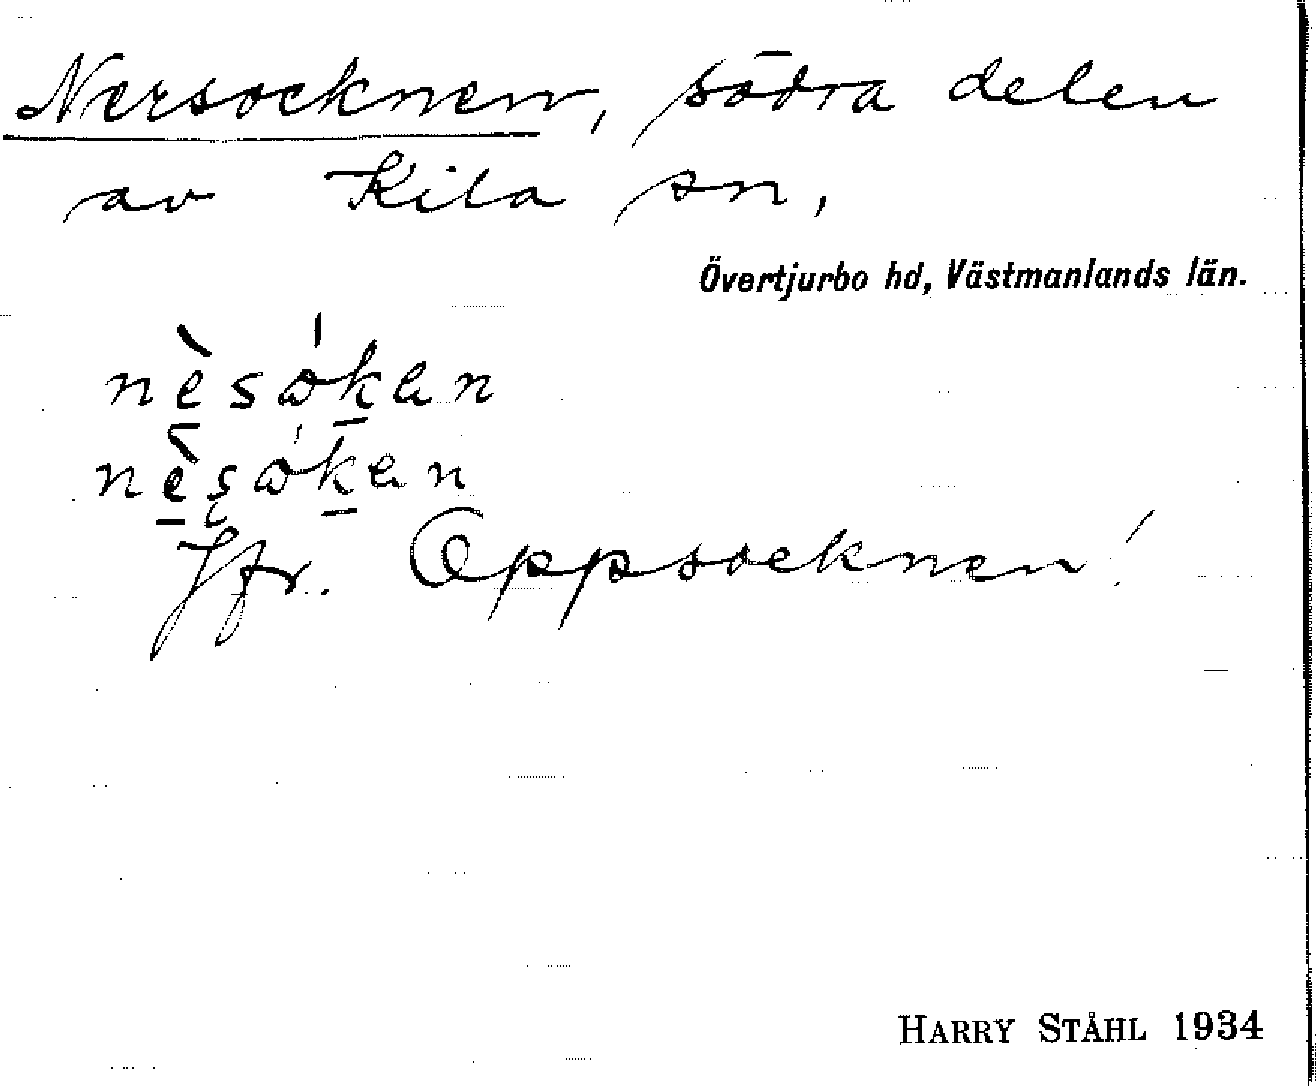 Nersocknen, södra delen
av Kila sn,
Övertjurbo hd, Västmanlands län.
nèsókan
nèşókan
Jfr. Oppsocknen!
HARRY STÅHL 1934